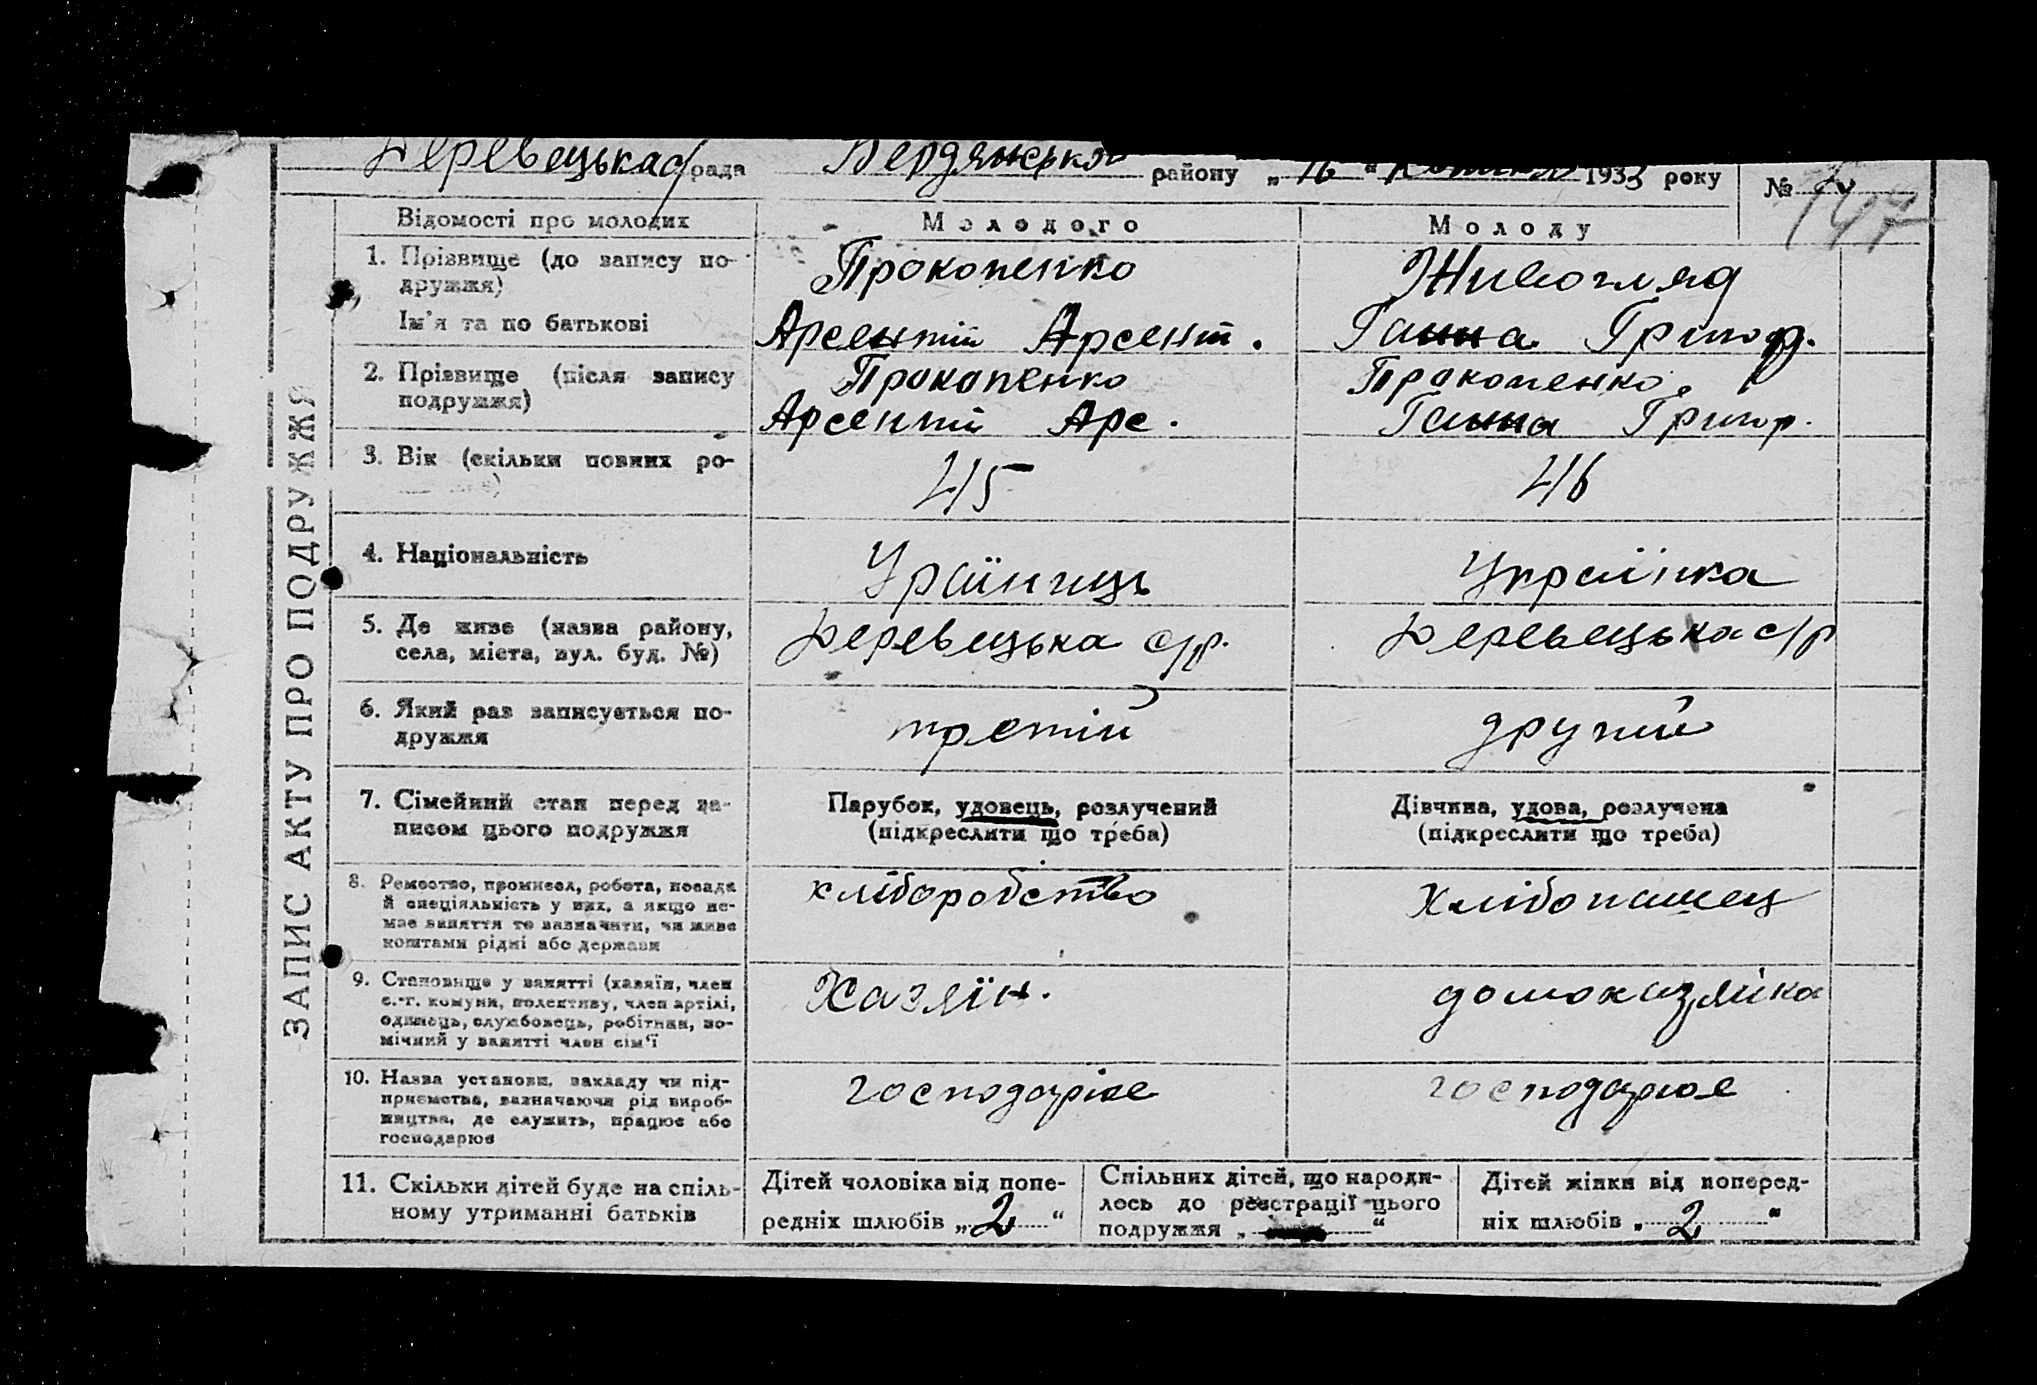 Деревецька с/рада Бердянська району „16“ 1933 року №
147
ЗАПИС АКТУ ПРО ПОДРУЖЖЯ
Відомості про молодих Молодого Молоду
1. Прізвище (до запису по-
дружжя) Прокопенко Живогляд
Ім'я та по батькові Арсентій Арсент. Ганна Григор.
2. Прізвище (після запису Прокопенко Прокопенко
подружжя) Арсентій Арс. Ганна Григор.
3. Вік (скільки повних ро- 45 46
4. Національність Убраїниць Українка
5. Де живе (назва району, Деревецька с/р. Деревецька с/р
села, міста, вул. буд. №)
6. Який раз записується по- третій другий
дружжя
7. Сімейний стан перед за- Парубок, удовець, розлучений Дівчина, удова, розлучена
писом цього подружжя (підкреслити що треба) (підкреслити що треба)
8. Ремество, промисел, робота, посада хліборобство Хлібопашец
й спеціяльність у них, а якщо не-
має заняття то зазначити, чи живе
коштами рідні або держави
9. Становище у занятті (хазяїн, член Хазяїн. домохазяйка
с.-г. комуни, колективу, член артілі,
одинець, службовець, робітник, по-
мічний у занятті член сім'ї
10. Назва установи, закладу чи під- господарює господарює
приємства, зазначаючи рід вироб-
ництва, де служить, працює або
господарює
11. Скільки дітей буде на спіль-
ному утриманні батьків
Дітей чоловіка від попе-
редніх шлюбів „2“
Спільних дітей, що народи-
лось до реєстрації цього
подружжя „ “
Дітей жінки від поперед-
ніх шлюбів „2“